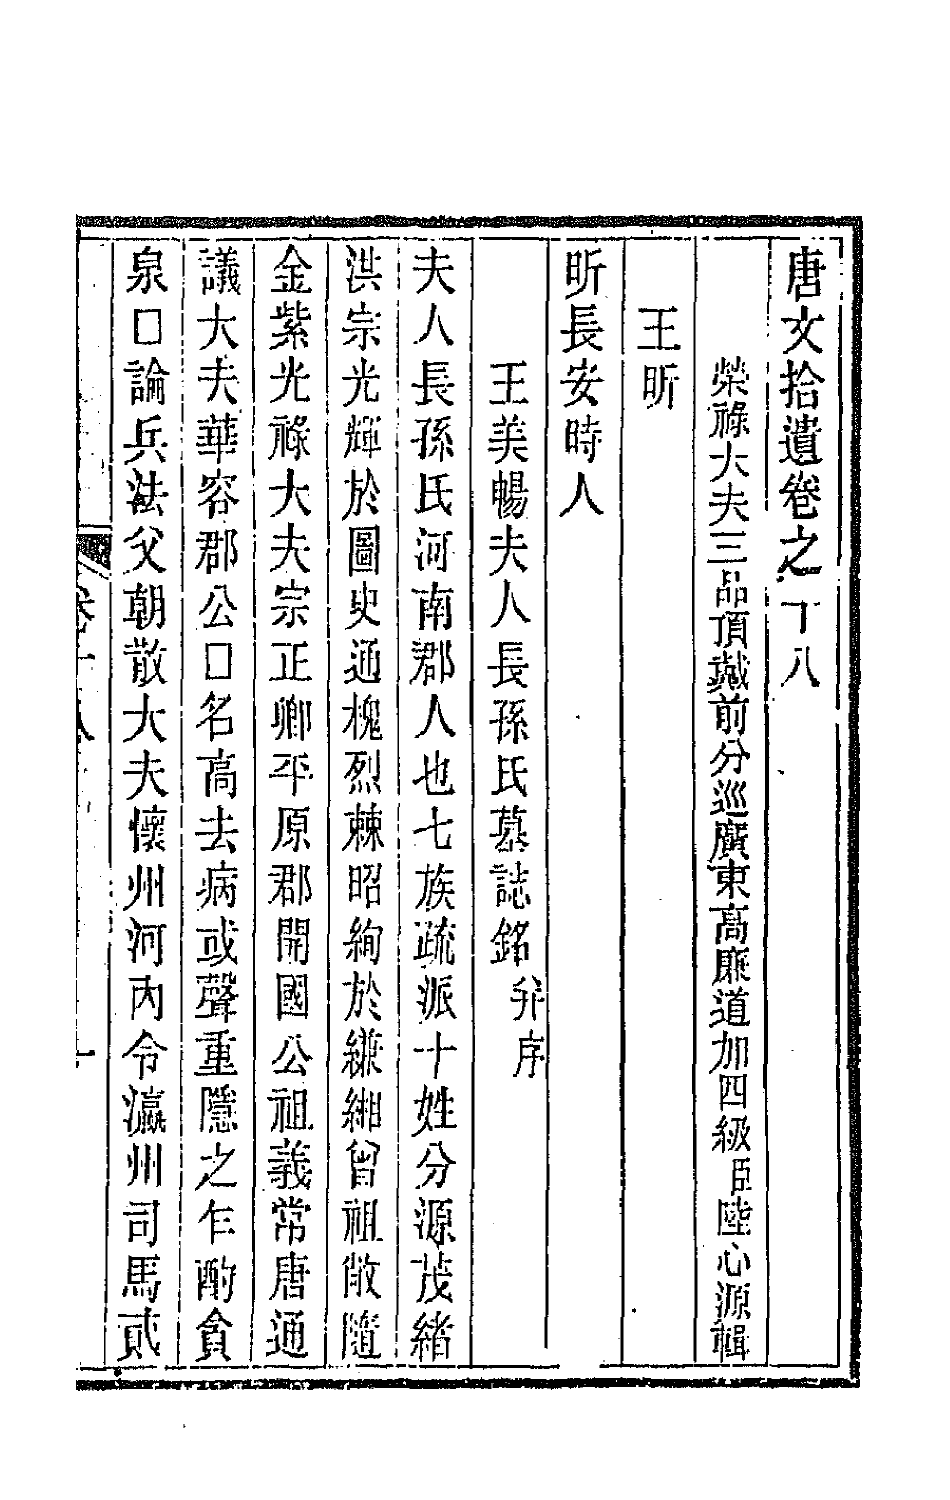 唐文拾遺卷之十八
榮祿大夫三品頂戴前分巡廣東高廉道加四級臣陸心源輯
王昕
昕長安時人
王美暢夫人長孫氏墓誌銘并序
夫人長孫氏河南郡人也七族疏派十姓分源茂緒
洪宗光輝於圖史通槐烈棘昭絢於縑緗曾祖敞隨
金紫光祿大夫宗正卿平原郡開國公祖義常唐通
議大夫華容郡公囗名高去病或聲重隱之乍酌貪
泉囗論兵法父朝散大夫懷州河內令瀛州司馬貳
卷十八
一